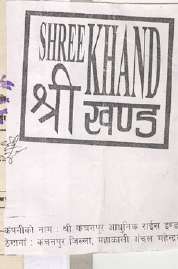 SHREE KHAND
श्री खण्ड
कंपनीको नाम : श्री कंचनपुर आधुनिक राईस इण्ड
ठेगाना : कंचनपुर जिल्ला, महाकाली अंचल महेन्द्र